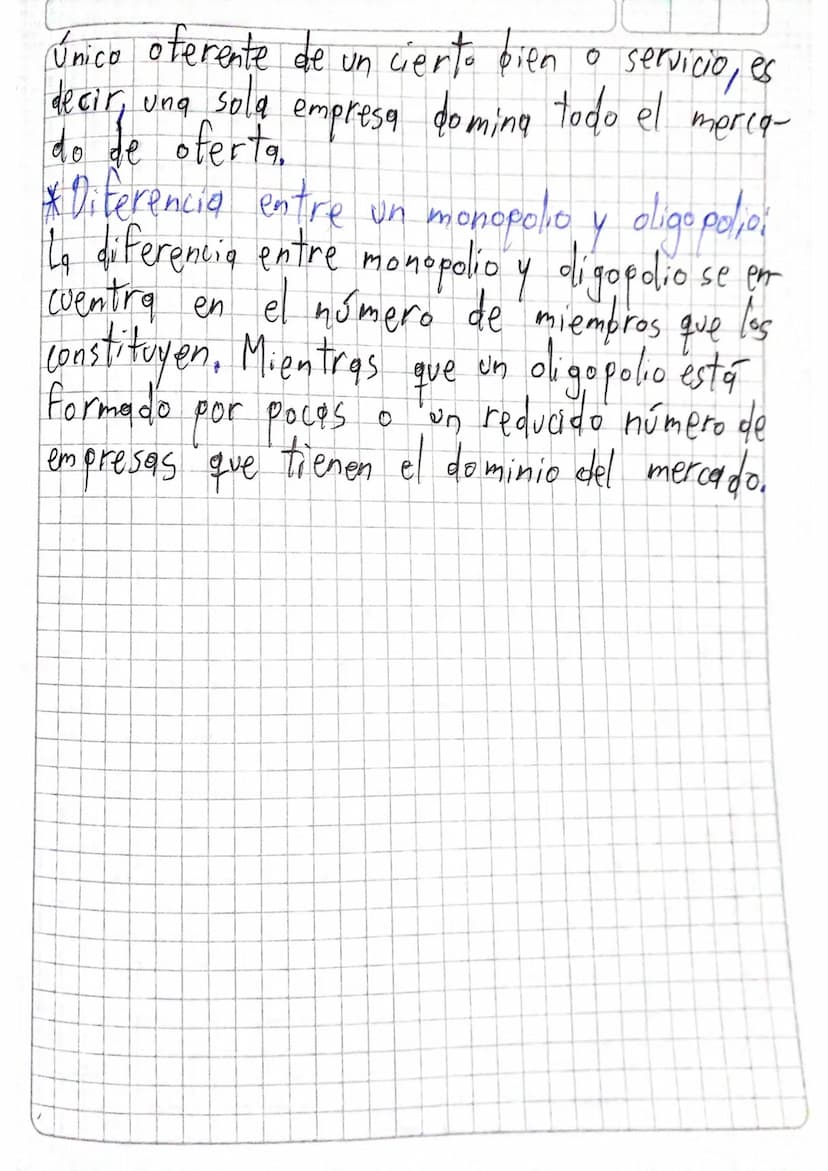 único oferente de un cierto bien o servicio, es
decir, una sola empresa domina todo el merca-
do de oferta.
* Diferencia entre un monopolio y oligopolio:
La diferencia entre monopolio y oligopolio se en-
cuentra en el número de miembros que los
constituyen. Mientras que un oligopolio está
formado por pocas o un reducido número de
empresas que tienen el dominio del mercado.